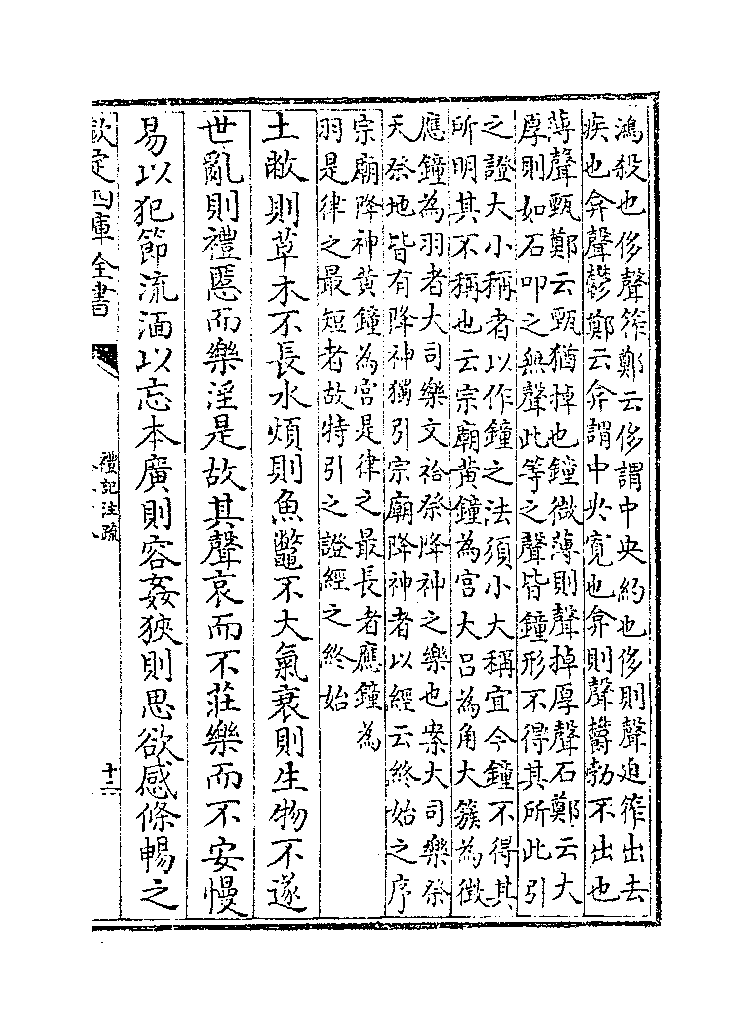 鴻殺也侈聲筰鄭云侈謂中央約也侈則聲迫筰出去
疾也弇聲鬱鄭云弇謂中央寛也弇則聲鬱勃不出也
薄聲甄鄭云甄猶掉也鐘微薄則聲掉厚聲石鄭云大
厚則如石叩之無聲此等之聲皆鐘形不得其所此引
之證大小稱者以作鐘之法須小大稱宜今鐘不得其
所明其不稱也云宗廟黄鐘為宮大呂為角大簇為徵
應鐘為羽者大司樂文祫祭降神之樂也案大司樂祭
天祭地皆有降神獨引宗廟降神者以經云終始之序
宗廟降神黄鐘為宮是律之最長者應鐘為
羽是律之最短者故特引之證經之終始
土敝則草木不長水煩則魚鼈不大氣衰則生物不遂
世亂則禮慝而樂淫是故其聲哀而不莊樂而不安慢
易以犯節流湎以忘本廣則容姦狹則思欲感條暢之
欽定四庫全書
禮記注疏
十二